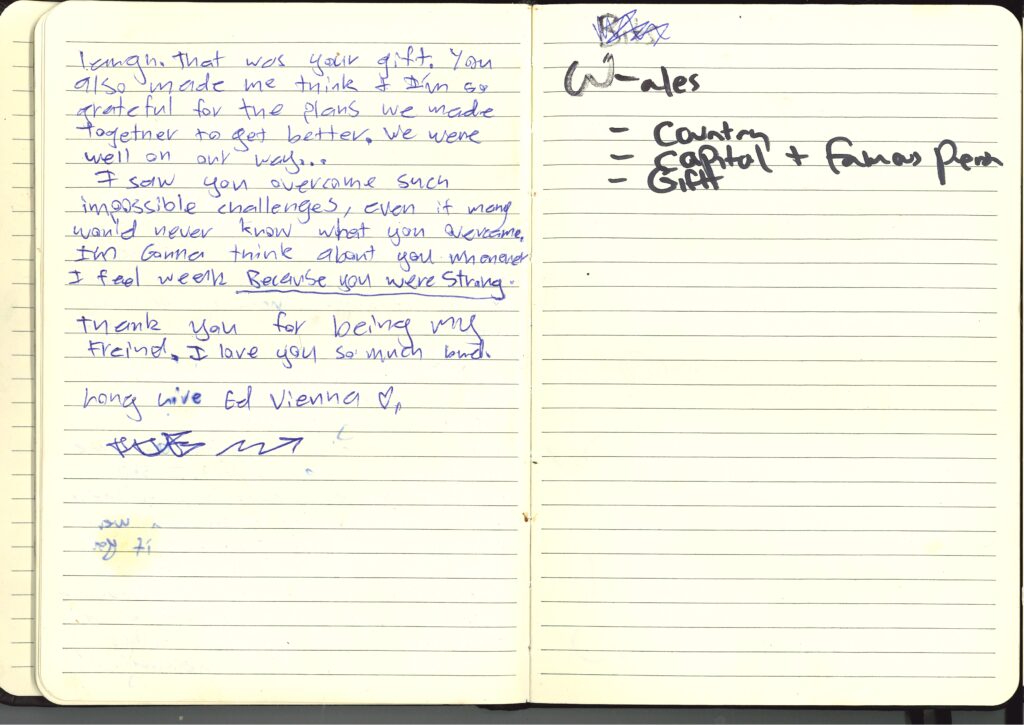 laugh. That was your gift. You
also made me think & I'm so
grateful for the plans we made
together to get better. We were
well on our way...
I saw you overcome such
impossible challenges, even if many
would never know what you overcame.
I'm Gonna think about you whenever
I feel weak Because you were Strong.
Thank you for being my
Freind. I love you so much bud.
Long Live Ed Vienna ♡,
W-ales
- Country
- Capital + Famous Person
- Gift